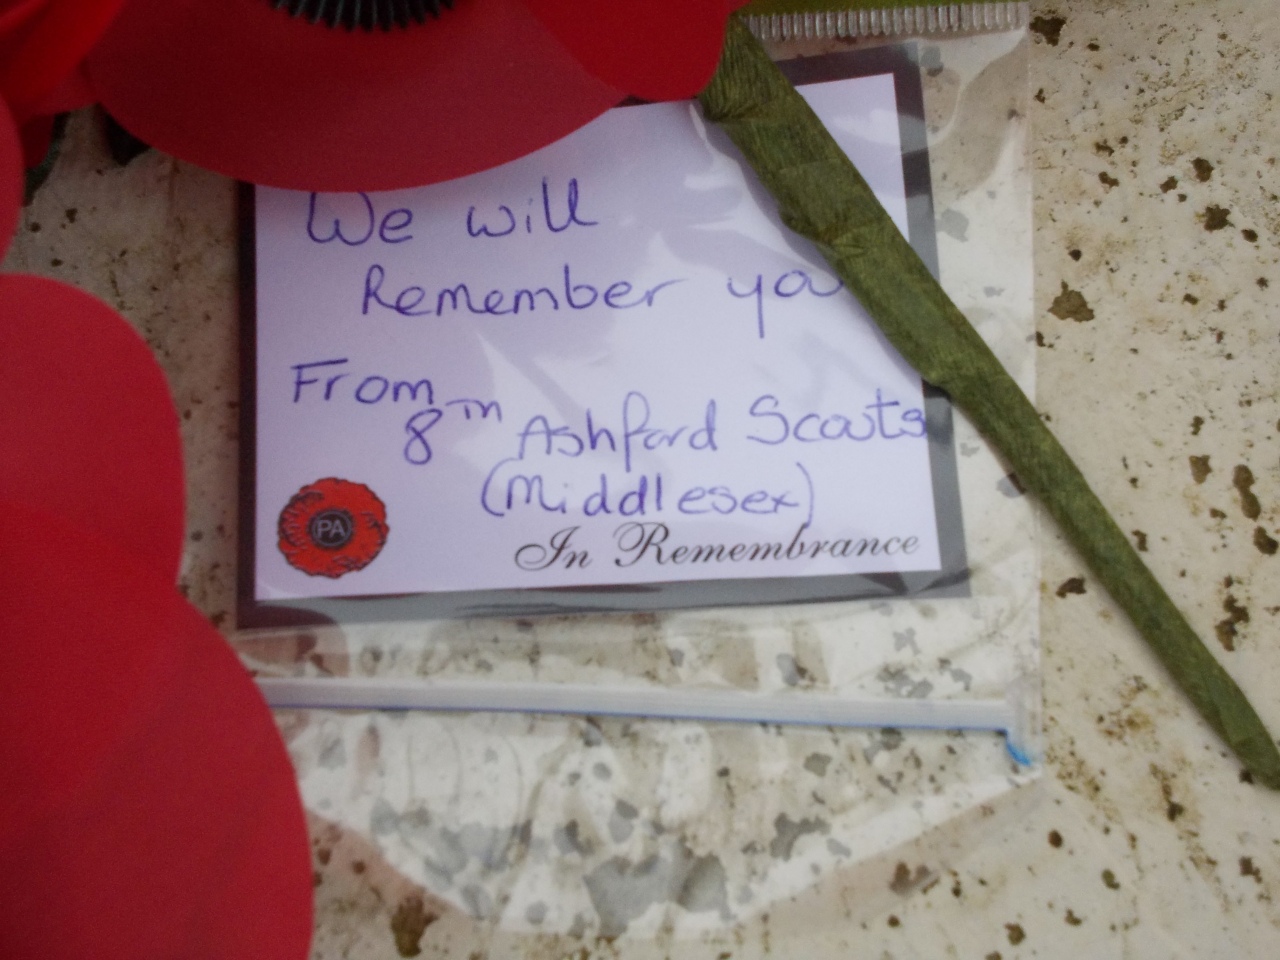 We will
Remember yo
From
8TH Ashford Scouts
(Middlesex)
PA
In Remembrance